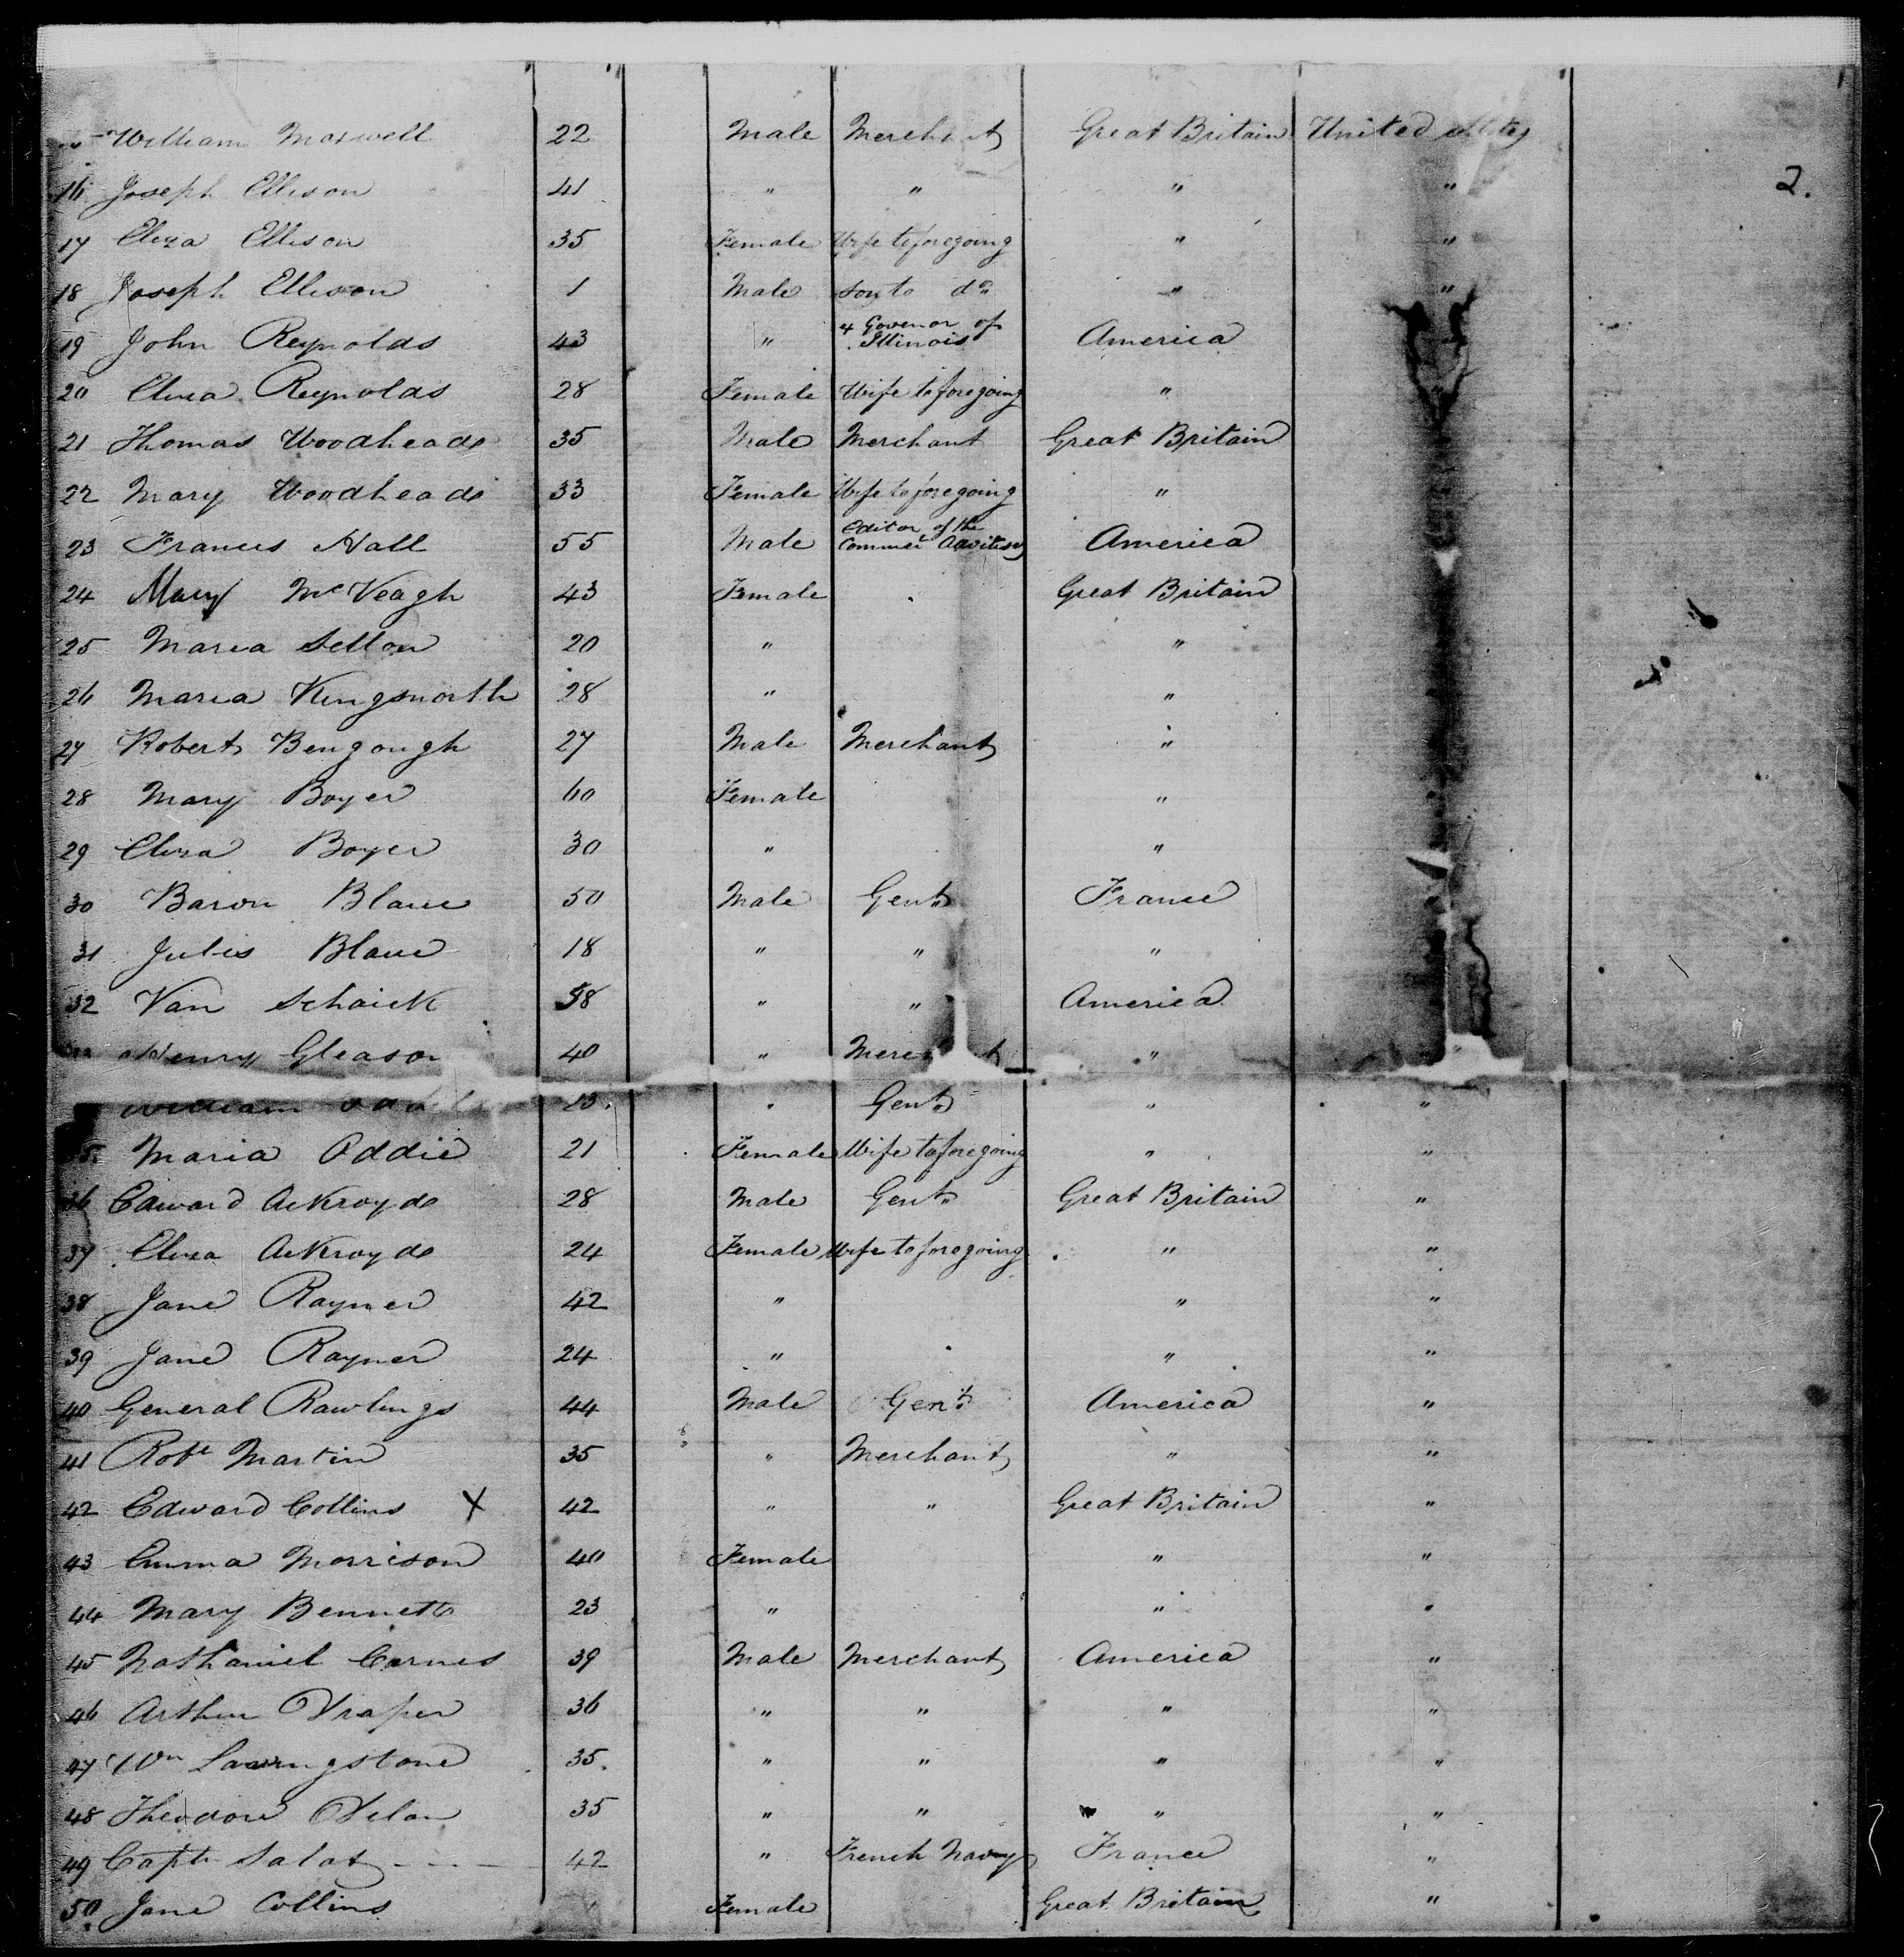 William Maxwell 22 Male Merchant Great Britain United States
16 Joseph Ellison 41 " " " " 2.
17 Eliza Ellison 35 Female Wife to foregoing " "
18 Joseph Ellison 1 Male Son to do " "
19 John Reynolds 43 " 4 Govenor of Illinois America
20 Eliza Reynolds 28 Female Wife to foregoing " "
21 Thomas Woodheads 35 Male Merchant Great Britain
22 Mary Woodheads 33 Female Wife to foregoing "
23 Francis Hall 55 Male Editor of the Commer Advitiser America
24 Mary McVeagh 43 Female Great Britain
25 Maria 20 " "
26 Maria Kingsnorth 28 " "
27 Robert Bengough 27 Male Merchant "
28 Mary Boyer 60 Female "
29 Eliza Boyer 30 " "
30 Baron Blanc 50 Male Gent France
31 Julis Blanc 18 " " "
32 Van Schaick 58 " " America
Henry Gleason 40 " Merchant "
William 23 " Gent " "
35 Maria Oddie 21 Female Wife to foregoing " "
36 Edward Ackroyds 28 Male Gent Great Britain "
37 Eliza Ackroyds 24 Female Wife to foregoing " "
38 Jane Rayner 42 " " "
39 Jane Rayner 24 " " "
40 General Rawlings 44 Male Gent America "
41 Robt Martin 35 " Merchant " "
42 Edward Collins X 42 " " Great Britain "
43 Emma Morrison 40 Female " "
44 Mary Bennett 23 " " "
45 Nathaniel Carnes 39 Male Merchant America "
46 Arthur Draper 36 " " " "
47 Wm Lavingstone 35 " " " "
48 Theodore 35 " " " "
49 Captn Salat 42 " French Navy France "
50 Jane Collins Female Great Britain "